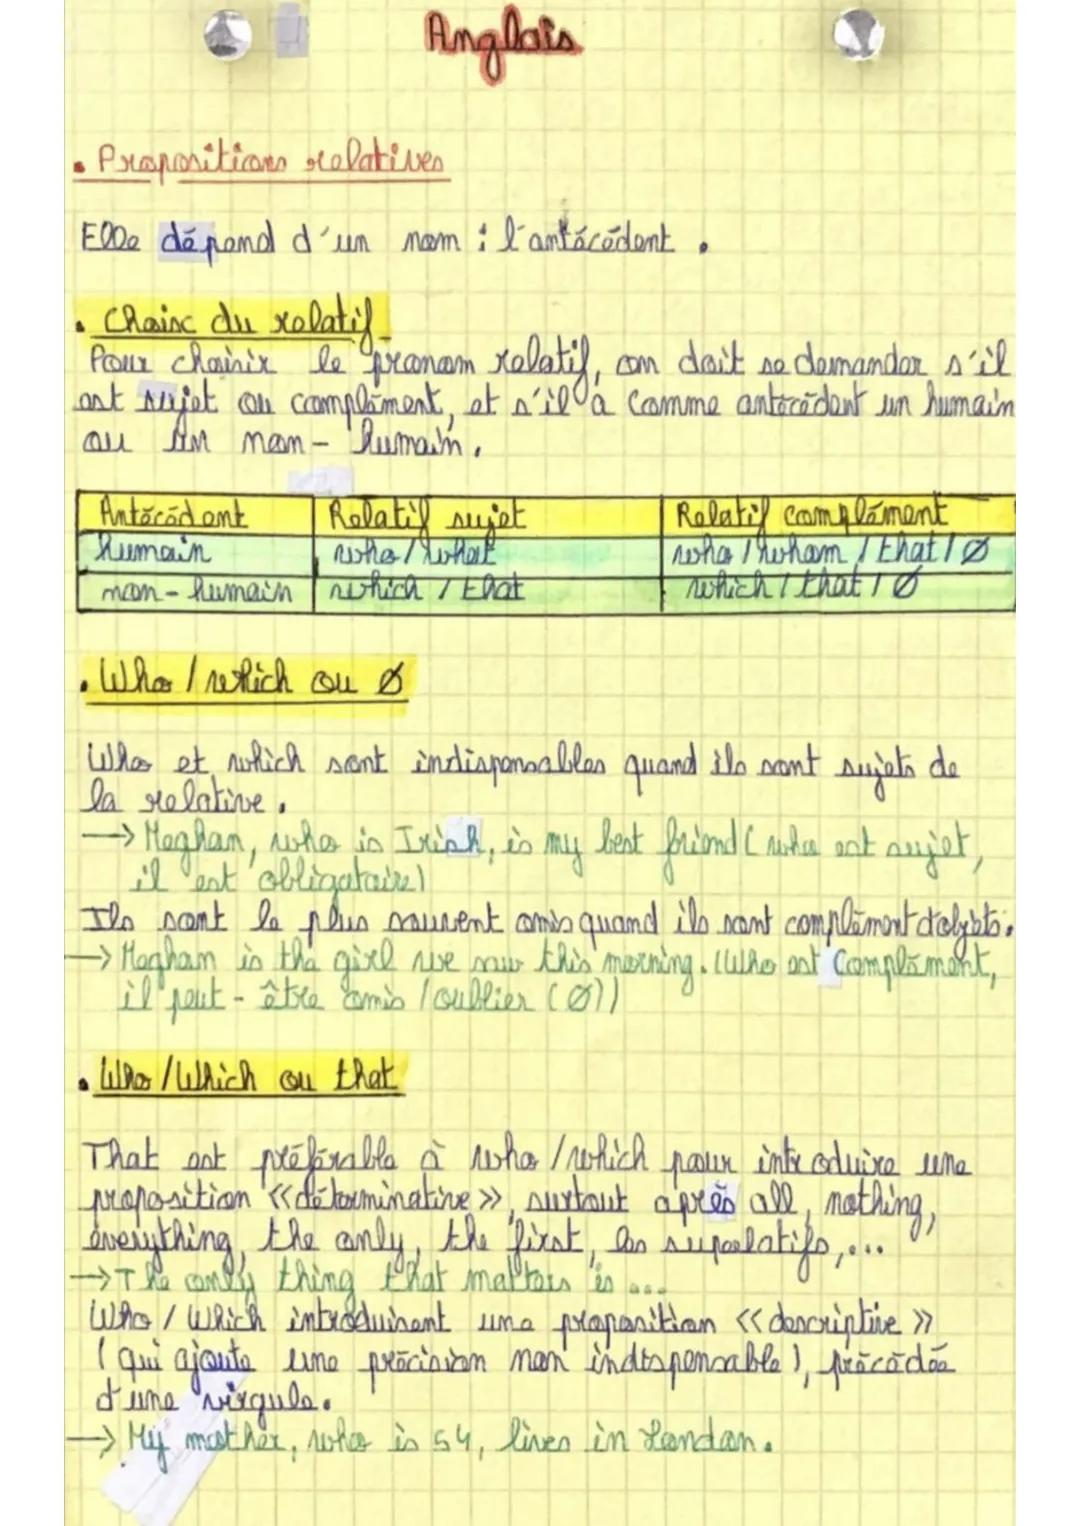 Anglais
• Propositions relatives
Elle dépend d'un nom : l'antécédent.
• Choix du relatif
Pour choisir le pronom relatif, on doit se demander s'il
est sujet ou complément, et s'il a comme antécédent un humain
ou un non-humain.
Antécédent Relatif sujet Relatif complément
humain who / what who / whom / that / Ø
non-humain which / that which / that / Ø
• Who / which ou Ø
Who et which sont indispensables quand ils sont sujets de
la relative.
→ Meghan, who is Irish, is my best friend (who est sujet,
il est obligatoire)
Ils sont le plus souvent omis quand ils sont complément d'objets.
→ Meghan is the girl we saw this morning. (Who est complément,
il peut-être omis / oublier (Ø))
• Who / Which ou that
That est préférable à who / which pour introduire une
proposition «déterminative», surtout après all, nothing,
everything, the only, the first, les superlatifs,...
→ The only thing that matters is ...
Who / Which introduisent une proposition «descriptive»
(qui ajoute une précision non indispensable), précédée
d'une virgule.
→ My mother, who is 54, lives in London.